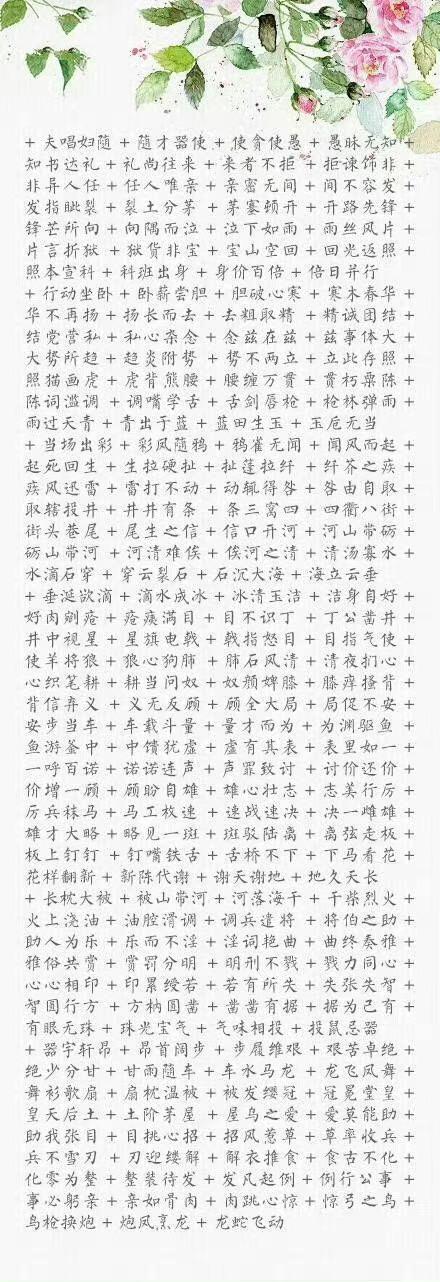 + 夫唱妇随 + 随才器使 + 使贪使愚 + 愚昧无知 +
知书达礼 + 礼尚往来 + 来者不拒 + 拒谏饰非 +
非异人任 + 任人唯亲 + 亲密无间 + 间不容发 +
发指眦裂 + 裂土分茅 + 茅塞顿开 + 开路先锋 +
锋芒所向 + 向隅而泣 + 泣下如雨 + 雨丝风片 +
片言折狱 + 狱货非宝 + 宝山空回 + 回光返照 +
照本宣科 + 科班出身 + 身价百倍 + 倍日并行
+ 行动坐卧 + 卧薪尝胆 + 胆破心寒 + 寒木春华 +
华不再扬 + 扬长而去 + 去粗取精 + 精诚团结 +
结党营私 + 私心杂念 + 念兹在兹 + 兹事体大 +
大势所趋 + 趋炎附势 + 势不两立 + 立此存照 +
照猫画虎 + 虎背熊腰 + 腰缠万贯 + 贯朽粟陈 +
陈词滥调 + 调嘴学舌 + 舌剑唇枪 + 枪林弹雨 +
雨过天青 + 青出于蓝 + 蓝田生玉 + 玉卮无当
+ 当场出彩 + 彩凤随鸦 + 鸦雀无闻 + 闻风而起 +
起死回生 + 生拉硬扯 + 扯蓬拉纤 + 纤芥之疾 +
疾风迅雷 + 雷打不动 + 动辄得咎 + 咎由自取 +
取辖投井 + 井井有条 + 条三窝四 + 四衢八街 +
街头巷尾 + 尾生之信 + 信口开河 + 河山带砺 +
砺山带河 + 河清难俟 + 俟河之清 + 清汤寡水 +
水滴石穿 + 穿云裂石 + 石沉大海 + 海立云垂
+ 垂涎欲滴 + 滴水成冰 + 冰清玉洁 + 洁身自好 +
好肉剜疮 + 疮痍满目 + 目不识丁 + 丁公凿井 +
井中视星 + 星旗电戟 + 戟指怒目 + 目指气使 +
使羊将狼 + 狼心狗肺 + 肺石风清 + 清夜扪心 +
心织笔耕 + 耕当问奴 + 奴颜婢膝 + 膝痒搔背 +
背信弃义 + 义无反顾 + 顾全大局 + 局促不安 +
安步当车 + 车载斗量 + 量才而为 + 为渊驱鱼 +
鱼游釜中 + 中馈犹虚 + 虚有其表 + 表里如一 +
一呼百诺 + 诺诺连声 + 声罪致讨 + 讨价还价 +
价增一顾 + 顾盼自雄 + 雄心壮志 + 志美行厉 +
厉兵秣马 + 马工枚速 + 速战速决 + 决一雌雄 +
雄才大略 + 略见一斑 + 斑驳陆离 + 离弦走板 +
板上钉钉 + 钉嘴铁舌 + 舌桥不下 + 下马看花 +
花样翻新 + 新陈代谢 + 谢天谢地 + 地久天长
+ 长枕大被 + 被山带河 + 河落海干 + 干柴烈火 +
火上浇油 + 油腔滑调 + 调兵遣将 + 将伯之助 +
助人为乐 + 乐而不淫 + 淫词艳曲 + 曲终奏雅 +
雅俗共赏 + 赏罚分明 + 明刑不戮 + 戮力同心 +
心心相印 + 印累绶若 + 若有所失 + 失张失智 +
智圆行方 + 方枘圆凿 + 凿凿有据 + 据为己有 +
有眼无珠 + 珠光宝气 + 气味相投 + 投鼠忌器
+ 器宇轩昂 + 昂首阔步 + 步履维艰 + 艰苦卓绝 +
绝少分甘 + 甘雨随车 + 车水马龙 + 龙飞凤舞 +
舞衫歌扇 + 扇枕温被 + 被发缨冠 + 冠冕堂皇 +
皇天后土 + 土阶茅屋 + 屋乌之爱 + 爱莫能助 +
助我张目 + 目挑心招 + 招风惹草 + 草率收兵 +
兵不雪刃 + 刃迎缕解 + 解衣推食 + 食古不化 +
化零为整 + 整装待发 + 发凡起例 + 例行公事 +
事必躬亲 + 亲如骨肉 + 肉跳心惊 + 惊弓之鸟 +
鸟枪换炮 + 炮凤烹龙 + 龙蛇飞动